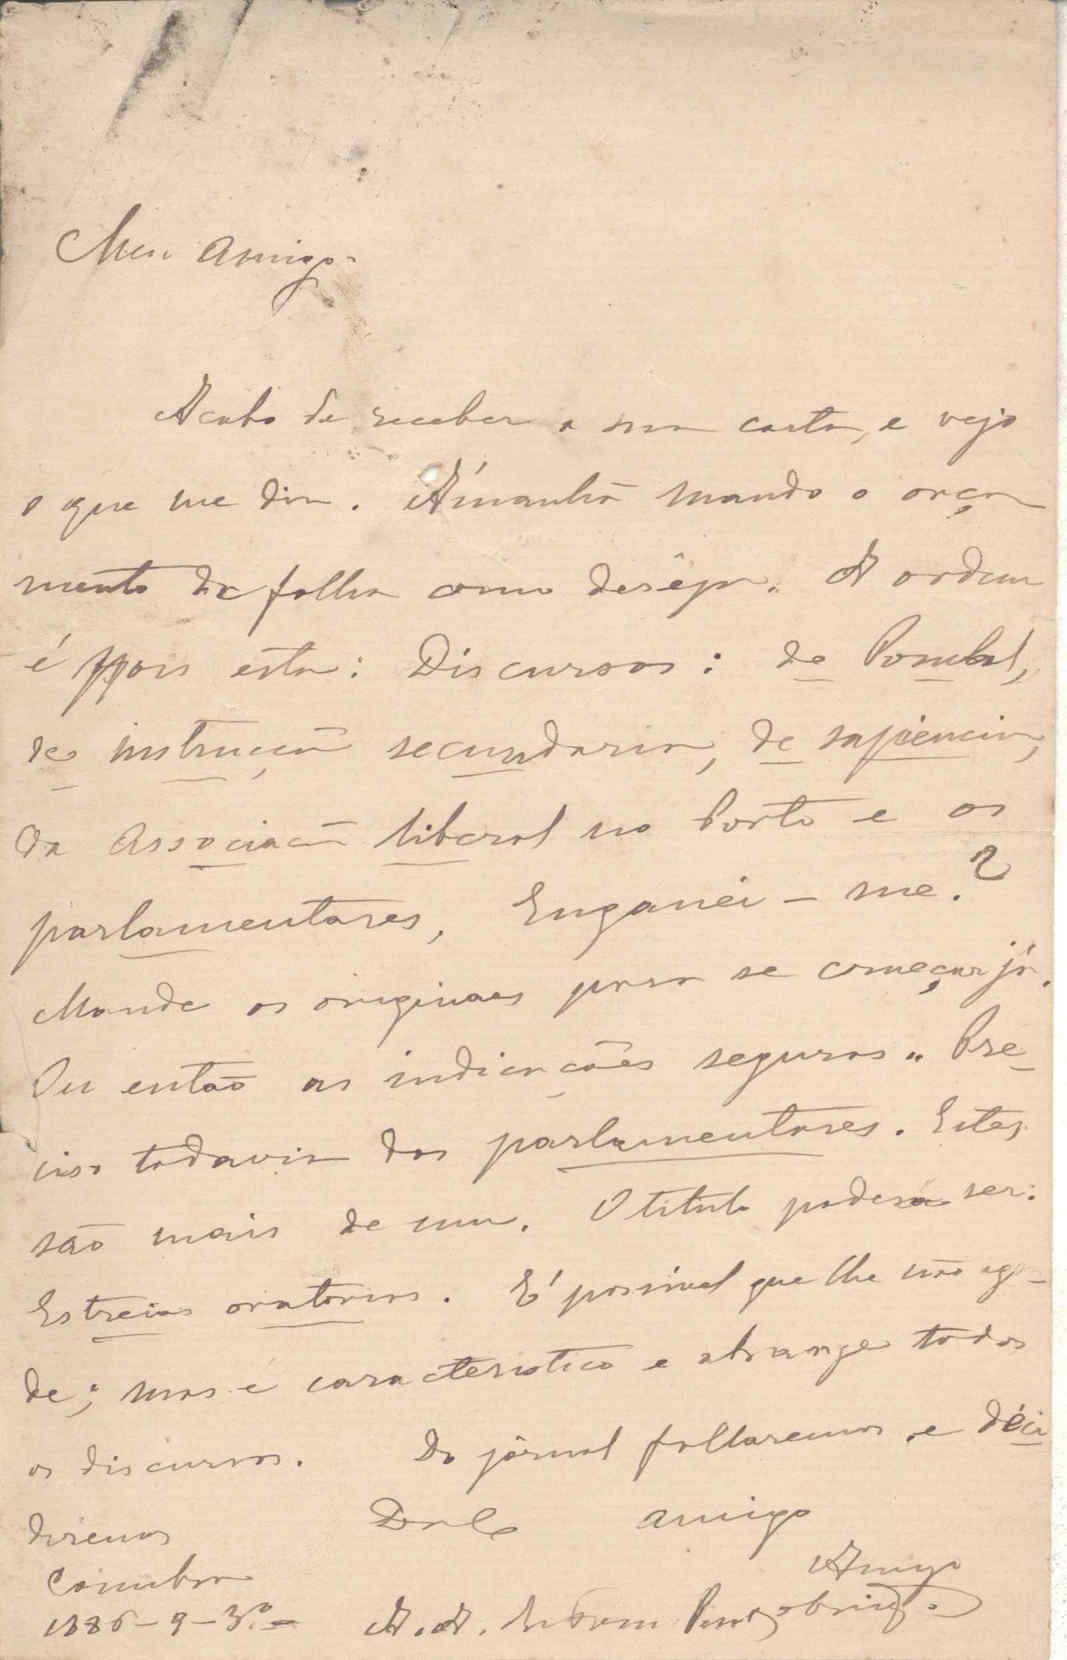 Meu amigo.
Acabo de receber a sua carta, e vejo
o que me diz. A'manhã mando o orça
mento da folha como deseja. A ordem
é pois esta: Discursos: de Pombal,
de instrucção secundaria, de sapiencia,
da Associacão liberal no Porto e os
parlamentares, Enganei-me?
Mande os originaes para se começar já.
Ou então as indicações seguras. Pre-
ciso todavia dos parlamentares. Estes
são mais de um. O titulo poderá ser:
Estreias oratorias. E' possivel que lhe não agra-
de; mas é caracteristico e abrange todos
os discursos. Do jornal fallaremos e deci
diremos
amigo
Coimbra
1886-9-30
A. A.